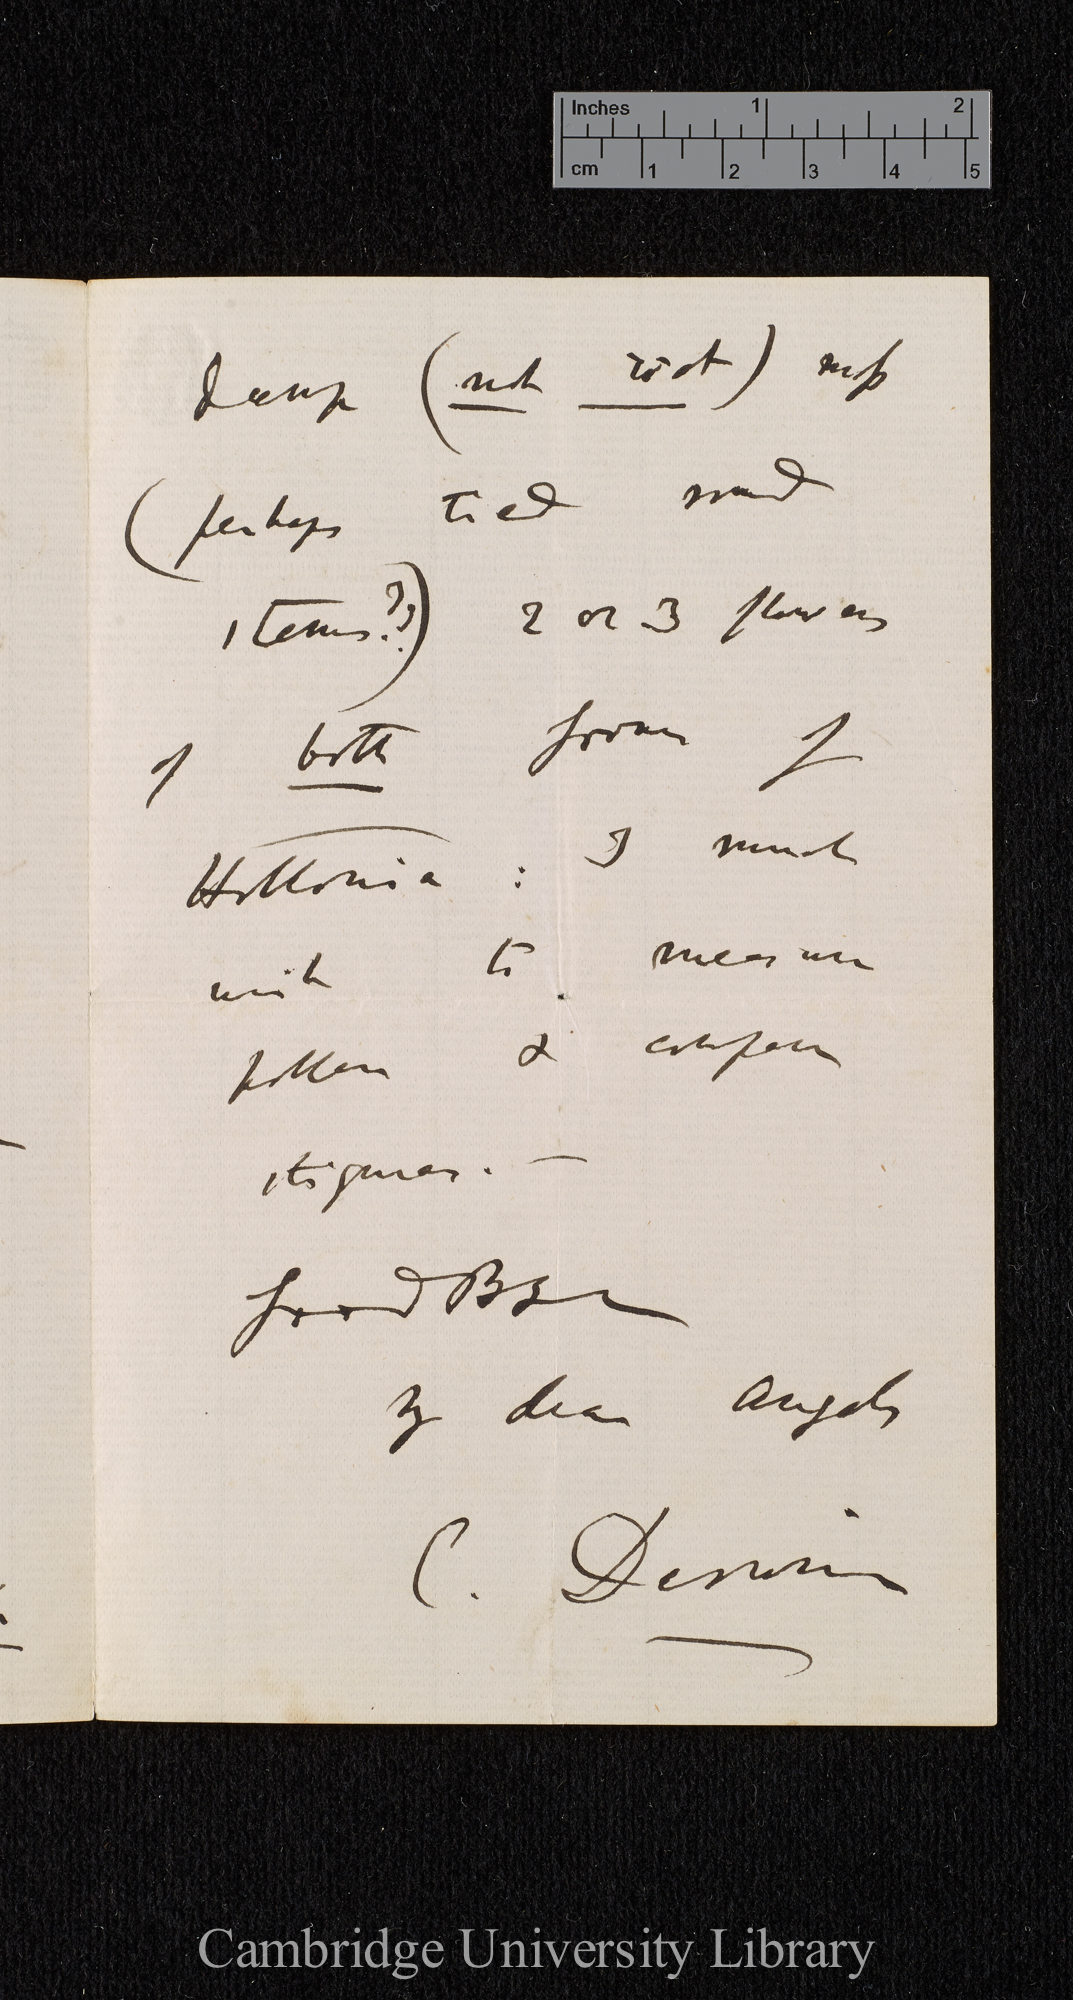 Inches 1 2
cm 1 2 3 4 5
damp (not wet) moss
(perhaps tied round
stems??) 2 or 3 flowers
of both forms of
Hottonia : I much
wish to measure
pollen & compare
stigmas. —
Good Bye
My dear Angels
C. Darwin
Cambridge University Library